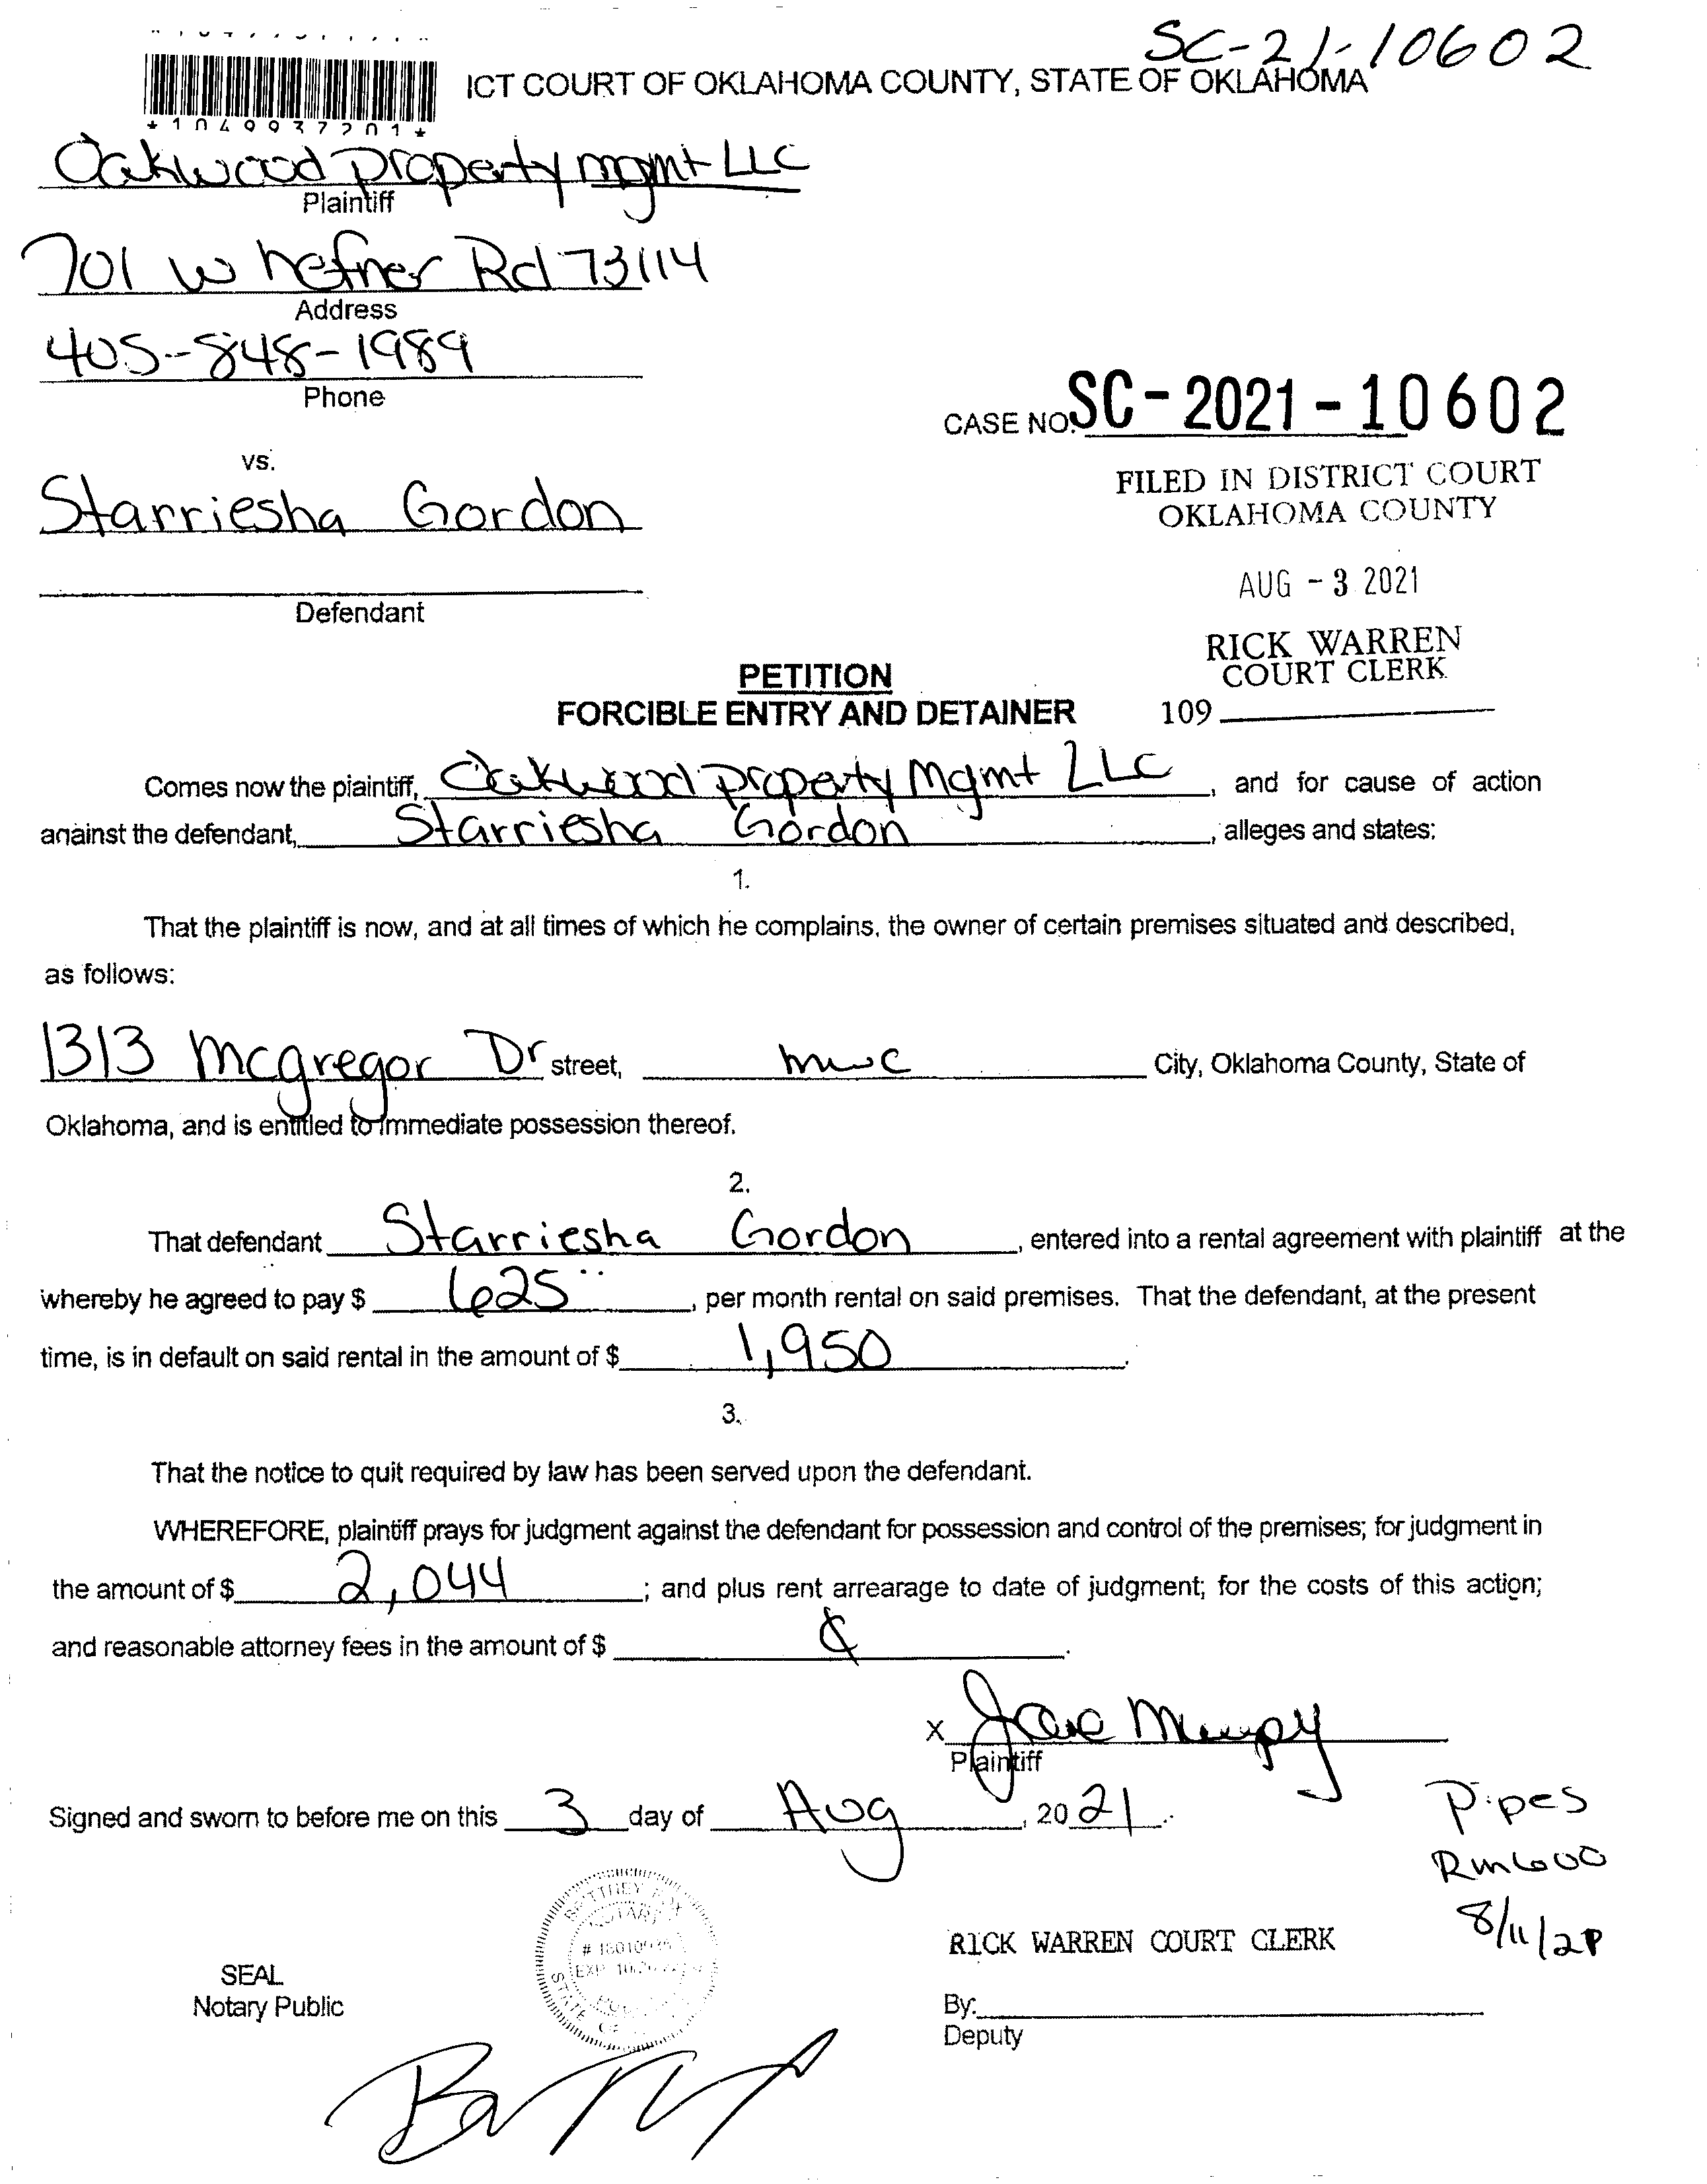 SC-21-10602
ICT COURT OF OKLAHOMA COUNTY, STATE OF OKLAHOMA
*1049937201*
Oakwood property mgmt LLC
Plaintiff
701 w hefner Rd 73114
Address
405-848-1989
Phone
CASE NO. SC-2021-10602
vs.
FILED IN DISTRICT COURT
OKLAHOMA COUNTY
Starriesha Gordon
AUG - 3 2021
Defendant
RICK WARREN
COURT CLERK
109
PETITION
FORCIBLE ENTRY AND DETAINER
Comes now the plaintiff, Oakwood property Mgmt LLC, and for cause of action
against the defendant, Starriesha Gordon, alleges and states:
1.
That the plaintiff is now, and at all times of which he complains, the owner of certain premises situated and described,
as follows:
1313 mcgregor Dr street, mwc City, Oklahoma County, State of
Oklahoma, and is entitled to immediate possession thereof.
2.
That defendant Starriesha Gordon, entered into a rental agreement with plaintiff at the
whereby he agreed to pay $ 625, per month rental on said premises. That the defendant, at the present
time, is in default on said rental in the amount of $ 1,950.
3.
That the notice to quit required by law has been served upon the defendant.
WHEREFORE, plaintiff prays for judgment against the defendant for possession and control of the premises; for judgment in
the amount of $ 2,044; and plus rent arrearage to date of judgment; for the costs of this action;
and reasonable attorney fees in the amount of $
X
Plaintiff
Signed and sworn to before me on this 3 day of Aug, 2021.
Pipes
Rm 600
8/11/2P
RICK WARREN COURT CLERK
SEAL
Notary Public
By:
Deputy